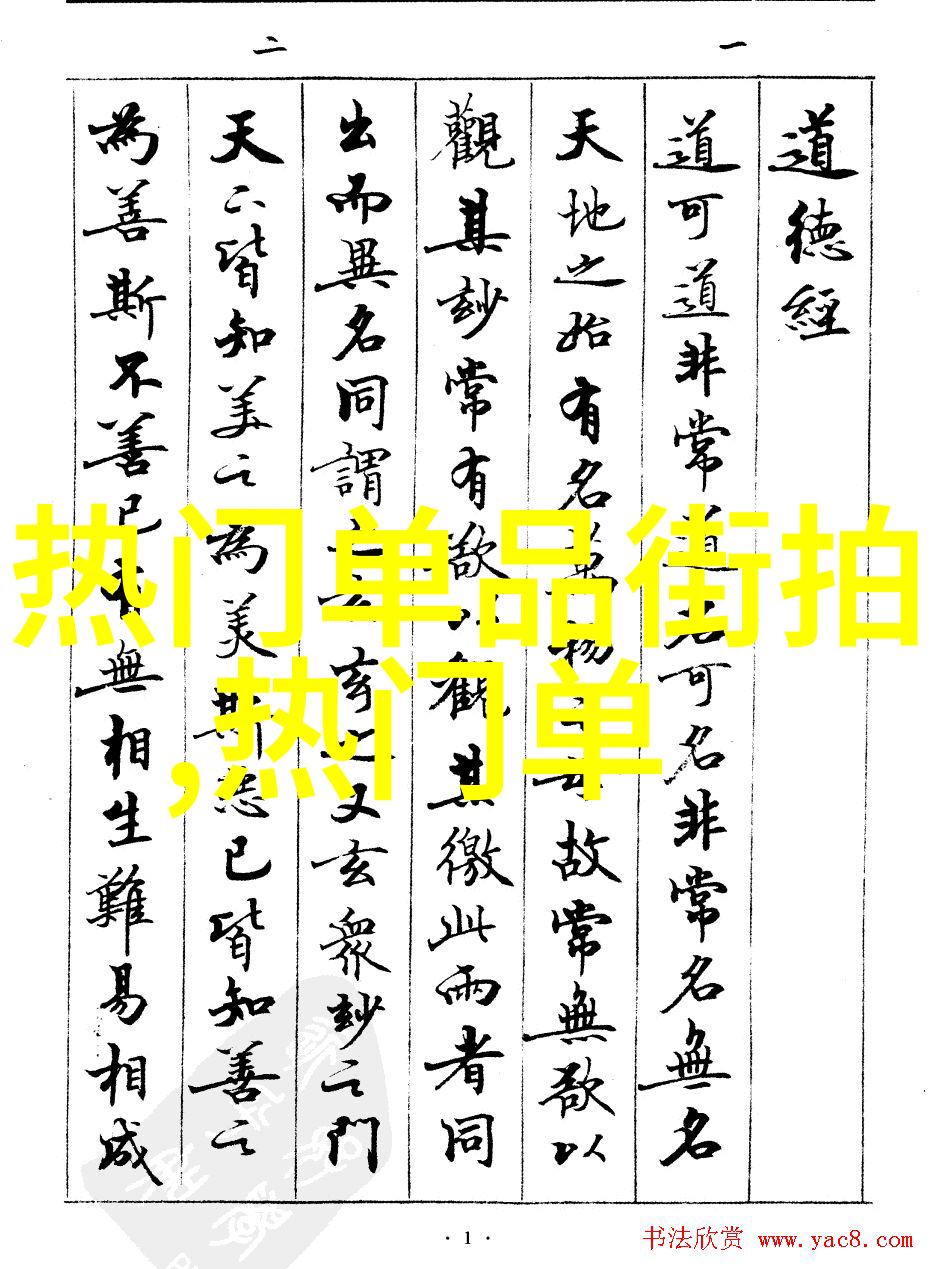 一
二
道德經
道可道非常道名可名非常名無名
天地之始有名萬物之母故常無欲以
觀其玅常有欲以觀其徼此兩者同
出而異名同謂之玄玄之又玄眾玅之門
天下皆知美之為美斯惡已皆知善之
為善斯不善已有無相生難易相成
热门单品街拍
,热门单
· 1 ·
书法欣赏 www.yac8.com